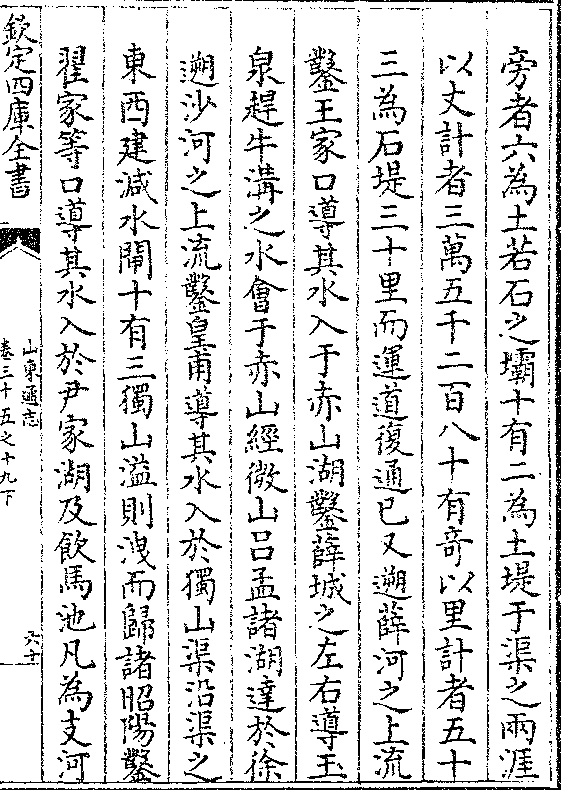 旁者六為土若石之壩十有二為土堤于渠之兩涯
以丈計者三萬五千二百八十有奇以里計者五十
三為石堤三十里而運道復通已又遡薛河之上流
鑿王家口導其水入于赤山湖鑿薛城之左右導玉
泉趕牛溝之水會于赤山經微山吕孟諸湖達於徐
遡沙河之上流鑿皇甫導其水入於獨山渠沿渠之
東西建減水閘十有三獨山溢則洩而歸諸昭陽鑿
翟家等口導其水入於尹家湖及飲馬池凡為支河
欽定四庫全書
山東通志
卷三十五之十九下
六十